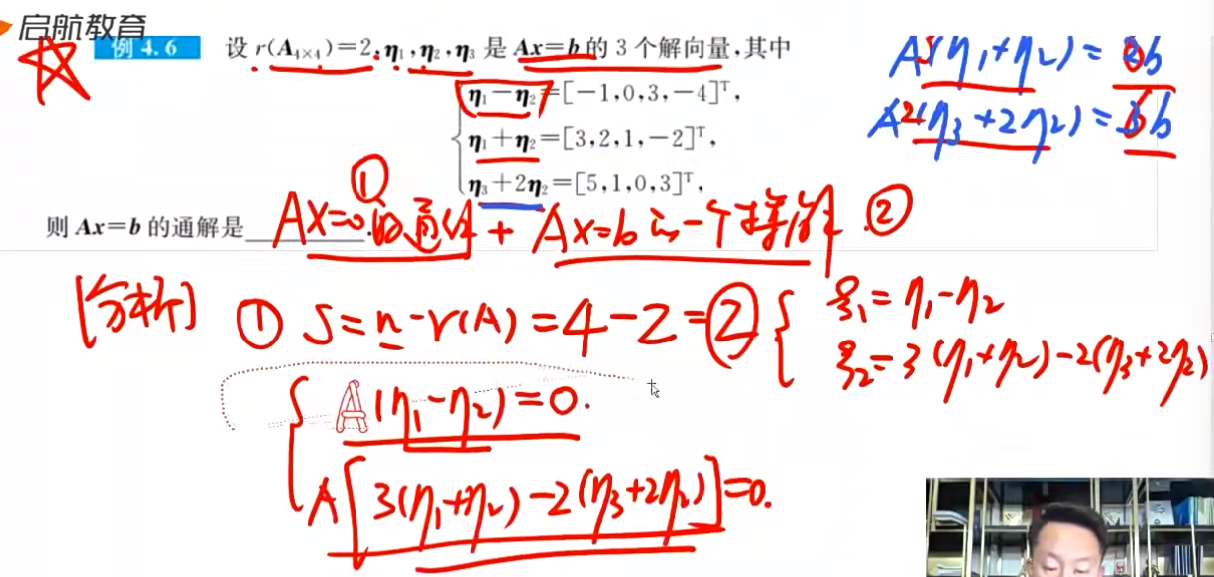 启航教育
例 4.6 设 r(A₄ₓ₄)=2,η₁,η₂,η₃ 是 Ax=b 的 3 个解向量,其中
η₁-η₂=[-1,0,3,-4]ᵀ,
η₁+η₂=[3,2,1,-2]ᵀ,
η₃+2η₂=[5,1,0,3]ᵀ,
A3(η₁+η₂)=6b
A2(η₃+2η₂)=6b
则 Ax=b 的通解是________.
① AX=0的通解 + AX=b的一个特解 ②
[分析] ① S=n-r(A)=4-2=② { ξ₁=η₁-η₂
ξ₂=3(η₁+η₂)-2(η₃+2η₂)
A(η₁-η₂)=0.
A[3(η₁+η₂)-2(η₃+2η₂)]=0.